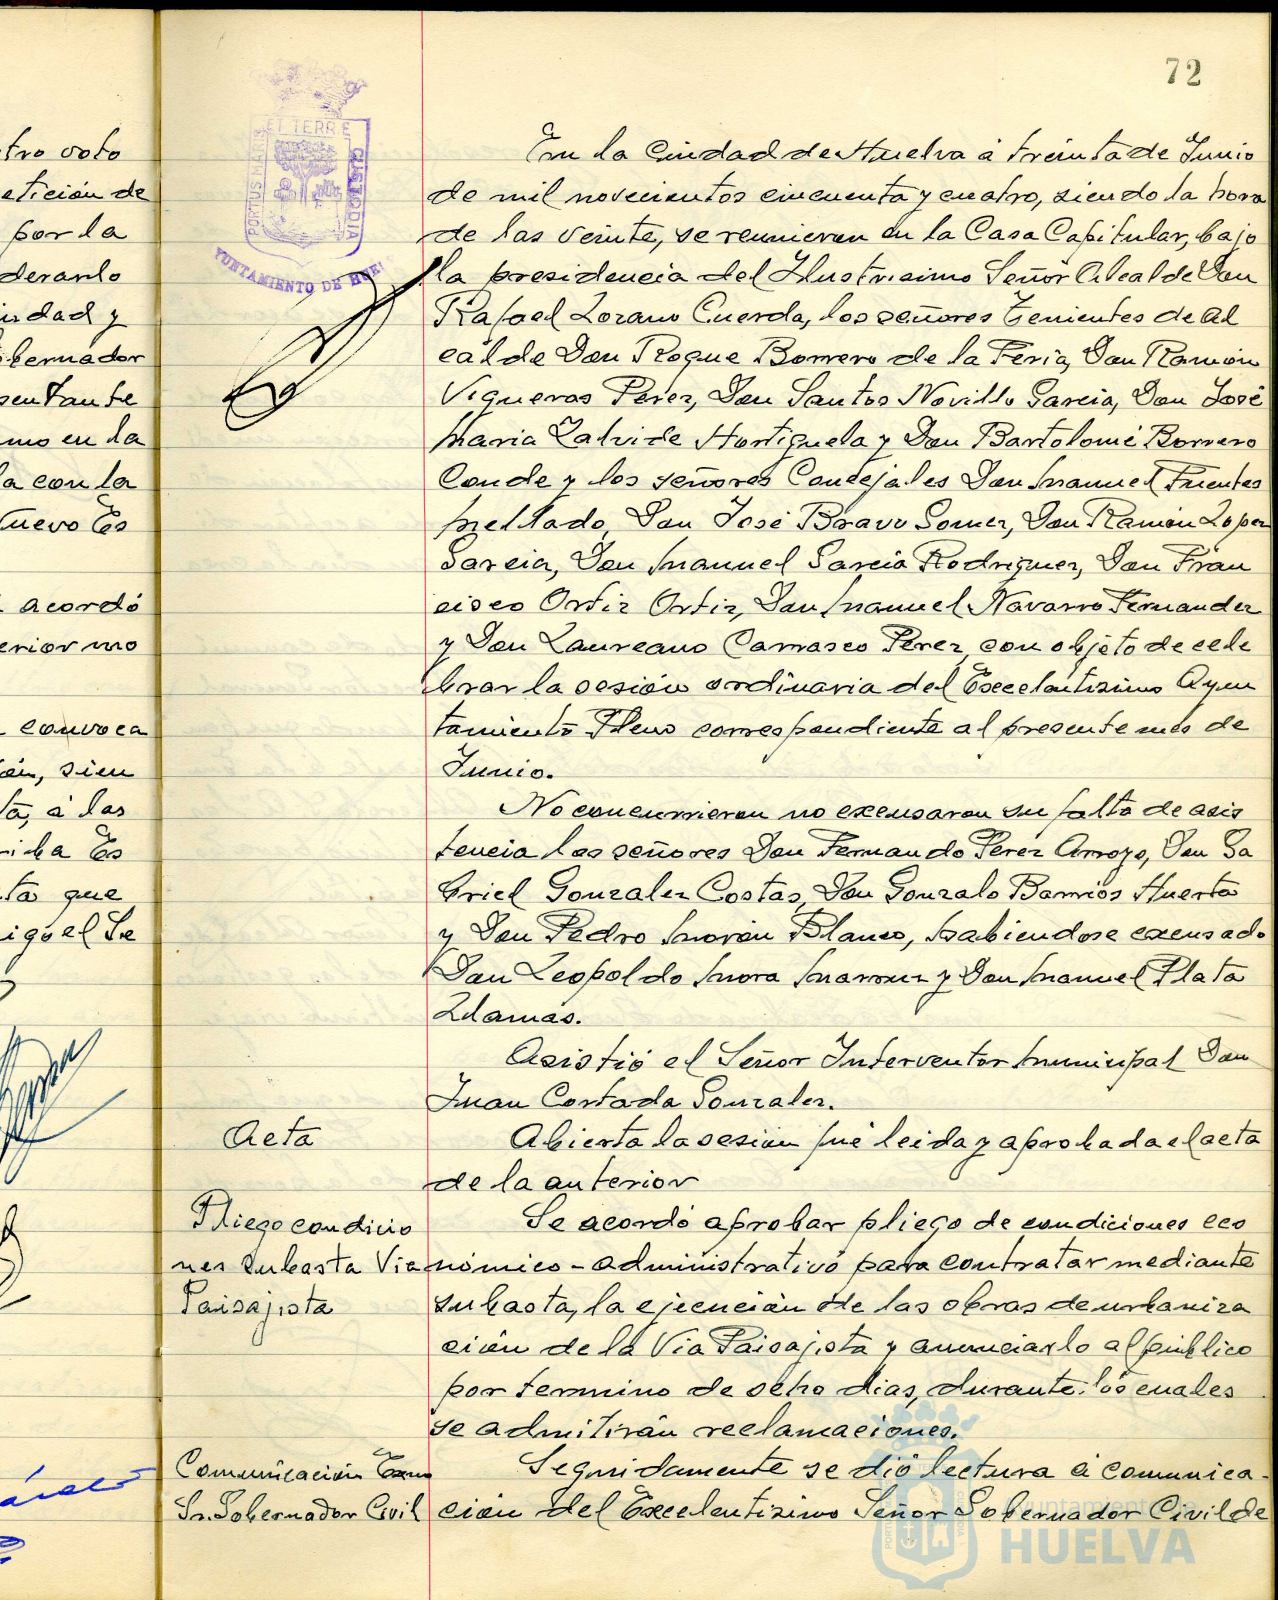 72
ET TERRE
PORTUS MARIS
CUSTODIA
YUNTAMIENTO DE HUE
tro voto
etición de
por la
derarlo
idad y
obernador
sentante
mo en la
la con la
Nuevo Es
acordó
erior mo
convoca
ón, sien
ta, á las
riba Es
ta que
iguel Se
En la Ciudad de Huelva á treinta de Junio
de mil novecientos cincuenta y cuatro, siendo la hora
de las veinte, se reunieron en la Casa Capitular, bajo
la presidencia del Ilustrisimo Señor Alcalde Don
Rafael Lozano Cuerda, los señores Tenientes de Al
calde Don Roque Borrero de la Feria, Don Ramón
Vigueras Perez, Don Santos Novillo Garcia, Don José
Maria Zalvide Hortiguela y Don Bartolomé Borrero
Conde y los señores Concejales Don Manuel Fuentes
Mellado, Don José Bravo Gomez, Don Ramón Lopez
Garcia, Don Manuel Garcia Rodriguez, Don Fran
cisco Ortiz Ortiz, Don Manuel Navarro Fernandez
y Don Laureano Carrasco Perez, con objeto de cele
brar la sesión ordinaria del Excelentisimo Ayun
tamiento Pleno correspondiente al presente mes de
Junio.
No concurrieron no excusaron su falta de asis
tencia los señores Don Fernando Perez Arroyo, Don Ga
briel Gonzalez Costas, Don Gonzalo Barrios Huerta
y Don Pedro Morón Blanco, habiendose excusado
Don Leopoldo Mora y Don Manuel Plata
Zdamás.
Asistió el Señor Interventor Municipal Don
Juan Cortada Gonzalez.
Acta
Abierta la sesión fué leida y aprobada el acta
de la anterior
Pliego condicio
nes subasta Via
Paisajista
Se acordó aprobar pliego de condiciones eco
nómico - administrativo para contratar mediante
subasta, la ejecución de las obras de urbaniza
ción de la Via Paisajista y anunciarlo al público
por termino de ocho dias, durante los cuales
se admitirán reclamaciones.
Comunicación Exmo
Sr. Gobernador Civil
Seguidamente se dió lectura á comunica-
ción del Excelentisimo Señor Gobernador Civil de
Ayuntamiento de
HUELVA